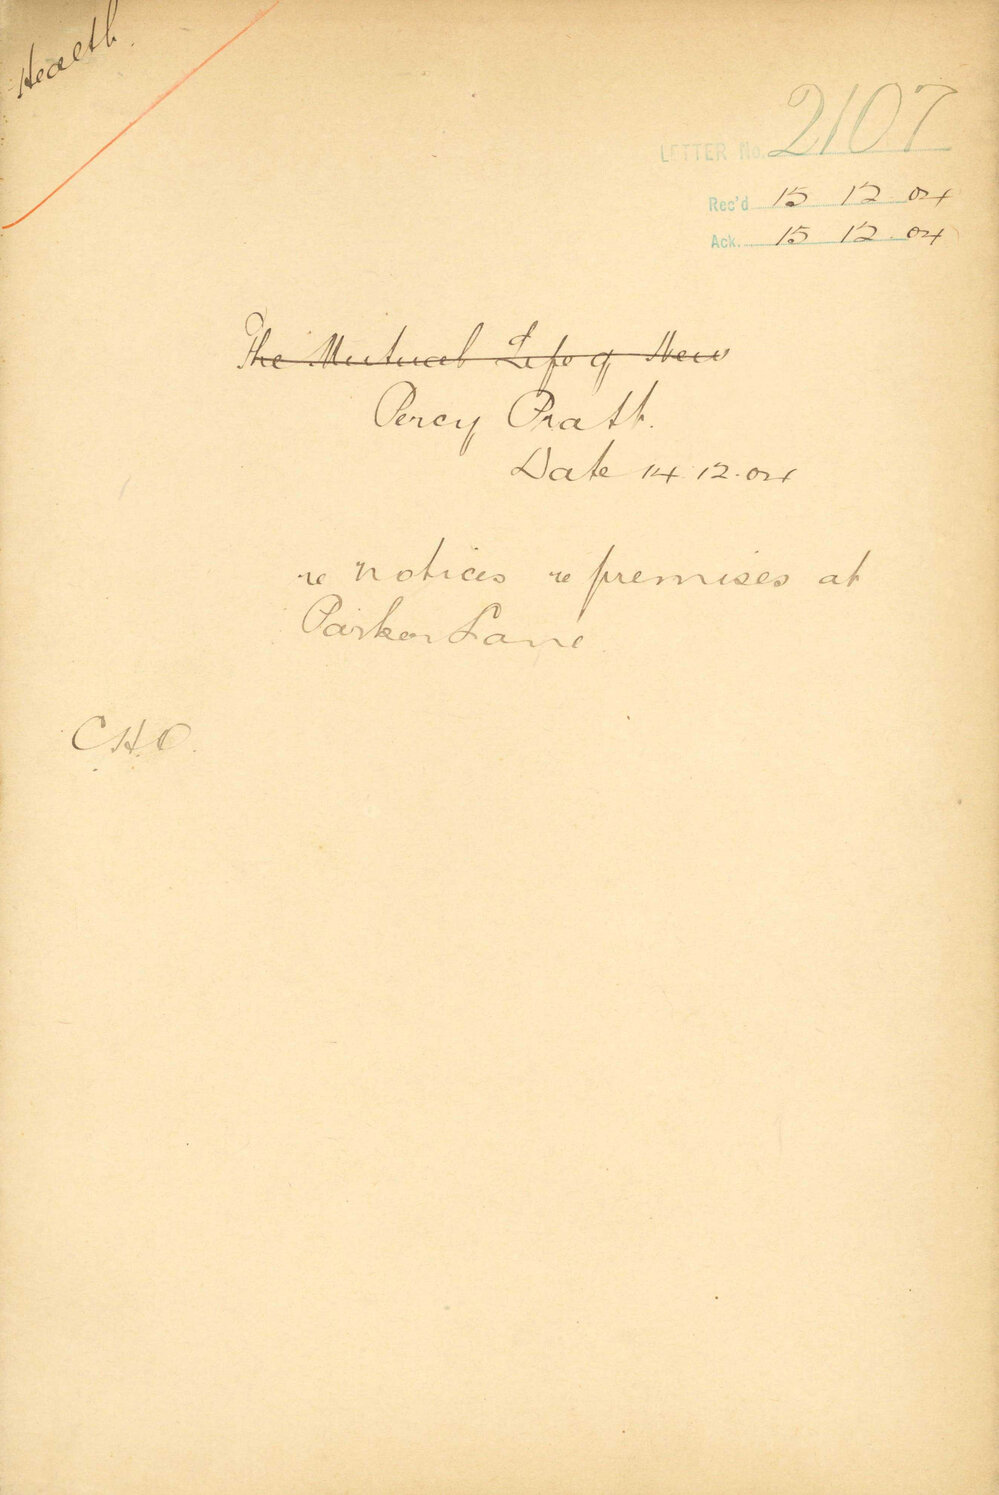 Health.
LETTER No. 2107
Rec'd 15 12 04
Ack. 15 12 04
The Mutual Life of New
Percy Pratt.
Date 14.12.04
re notices re premises at
Parker Lane
C.H.O.